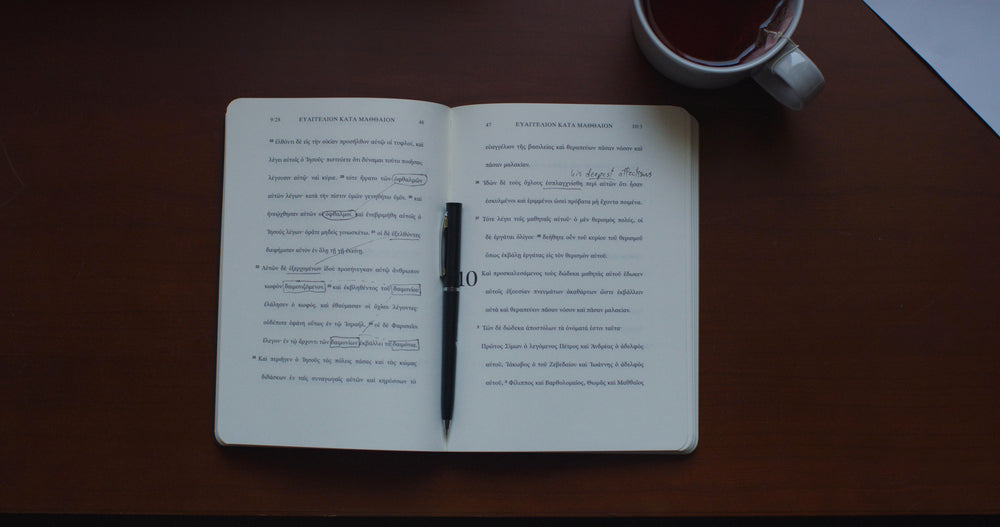 9:28 ΕΥΑΓΓΕΛΙΟΝ ΚΑΤΑ ΜΑΘΘΑΙΟΝ 46
28 ἐλθόντι δὲ εἰς τὴν οἰκίαν προσῆλθον αὐτῷ οἱ τυφλοί, καὶ
λέγει αὐτοῖς ὁ Ἰησοῦς· πιστεύετε ὅτι δύναμαι τοῦτο ποιῆσαι;
λέγουσιν αὐτῷ· ναὶ κύριε. 29 τότε ἥψατο τῶν ὀφθαλμῶν
αὐτῶν λέγων· κατὰ τὴν πίστιν ὑμῶν γενηθήτω ὑμῖν. 30 καὶ
ἠνεῴχθησαν αὐτῶν οἱ ὀφθαλμοί. καὶ ἐνεβριμήθη αὐτοῖς ὁ
Ἰησοῦς λέγων· ὁρᾶτε μηδεὶς γινωσκέτω. 31 οἱ δὲ ἐξελθόντες
διεφήμισαν αὐτὸν ἐν ὅλῃ τῇ γῇ ἐκείνῃ.
32 Αὐτῶν δὲ ἐξερχομένων ἰδοὺ προσήνεγκαν αὐτῷ ἄνθρωπον
κωφὸν δαιμονιζόμενον. 33 καὶ ἐκβληθέντος τοῦ δαιμονίου
ἐλάλησεν ὁ κωφός. καὶ ἐθαύμασαν οἱ ὄχλοι λέγοντες·
οὐδέποτε ἐφάνη οὕτως ἐν τῷ Ἰσραήλ. 34 οἱ δὲ Φαρισαῖοι
ἔλεγον· ἐν τῷ ἄρχοντι τῶν δαιμονίων ἐκβάλλει τὰ δαιμόνια.
35 Καὶ περιῆγεν ὁ Ἰησοῦς τὰς πόλεις πάσας καὶ τὰς κώμας
διδάσκων ἐν ταῖς συναγωγαῖς αὐτῶν καὶ κηρύσσων τὸ
47 ΕΥΑΓΓΕΛΙΟΝ ΚΑΤΑ ΜΑΘΘΑΙΟΝ 10:3
εὐαγγέλιον τῆς βασιλείας καὶ θεραπεύων πᾶσαν νόσον καὶ
πᾶσαν μαλακίαν.
his deepest affections
36 Ἰδὼν δὲ τοὺς ὄχλους ἐσπλαγχνίσθη περὶ αὐτῶν ὅτι ἦσαν
ἐσκυλμένοι καὶ ἐρριμμένοι ὡσεὶ πρόβατα μὴ ἔχοντα ποιμένα.
37 Τότε λέγει τοῖς μαθηταῖς αὐτοῦ· ὁ μὲν θερισμὸς πολύς, οἱ
δὲ ἐργάται ὀλίγοι· 38 δεήθητε οὖν τοῦ κυρίου τοῦ θερισμοῦ
ὅπως ἐκβάλῃ ἐργάτας εἰς τὸν θερισμὸν αὐτοῦ.
10 Καὶ προσκαλεσάμενος τοὺς δώδεκα μαθητὰς αὐτοῦ ἔδωκεν
αὐτοῖς ἐξουσίαν πνευμάτων ἀκαθάρτων ὥστε ἐκβάλλειν
αὐτὰ καὶ θεραπεύειν πᾶσαν νόσον καὶ πᾶσαν μαλακίαν.
2 Τῶν δὲ δώδεκα ἀποστόλων τὰ ὀνόματά ἐστιν ταῦτα·
Πρῶτος Σίμων ὁ λεγόμενος Πέτρος καὶ Ἀνδρέας ὁ ἀδελφὸς
αὐτοῦ, Ἰάκωβος ὁ τοῦ Ζεβεδαίου καὶ Ἰωάννης ὁ ἀδελφὸς
αὐτοῦ, 3 Φίλιππος καὶ Βαρθολομαῖος, Θωμᾶς καὶ Μαθθαῖος